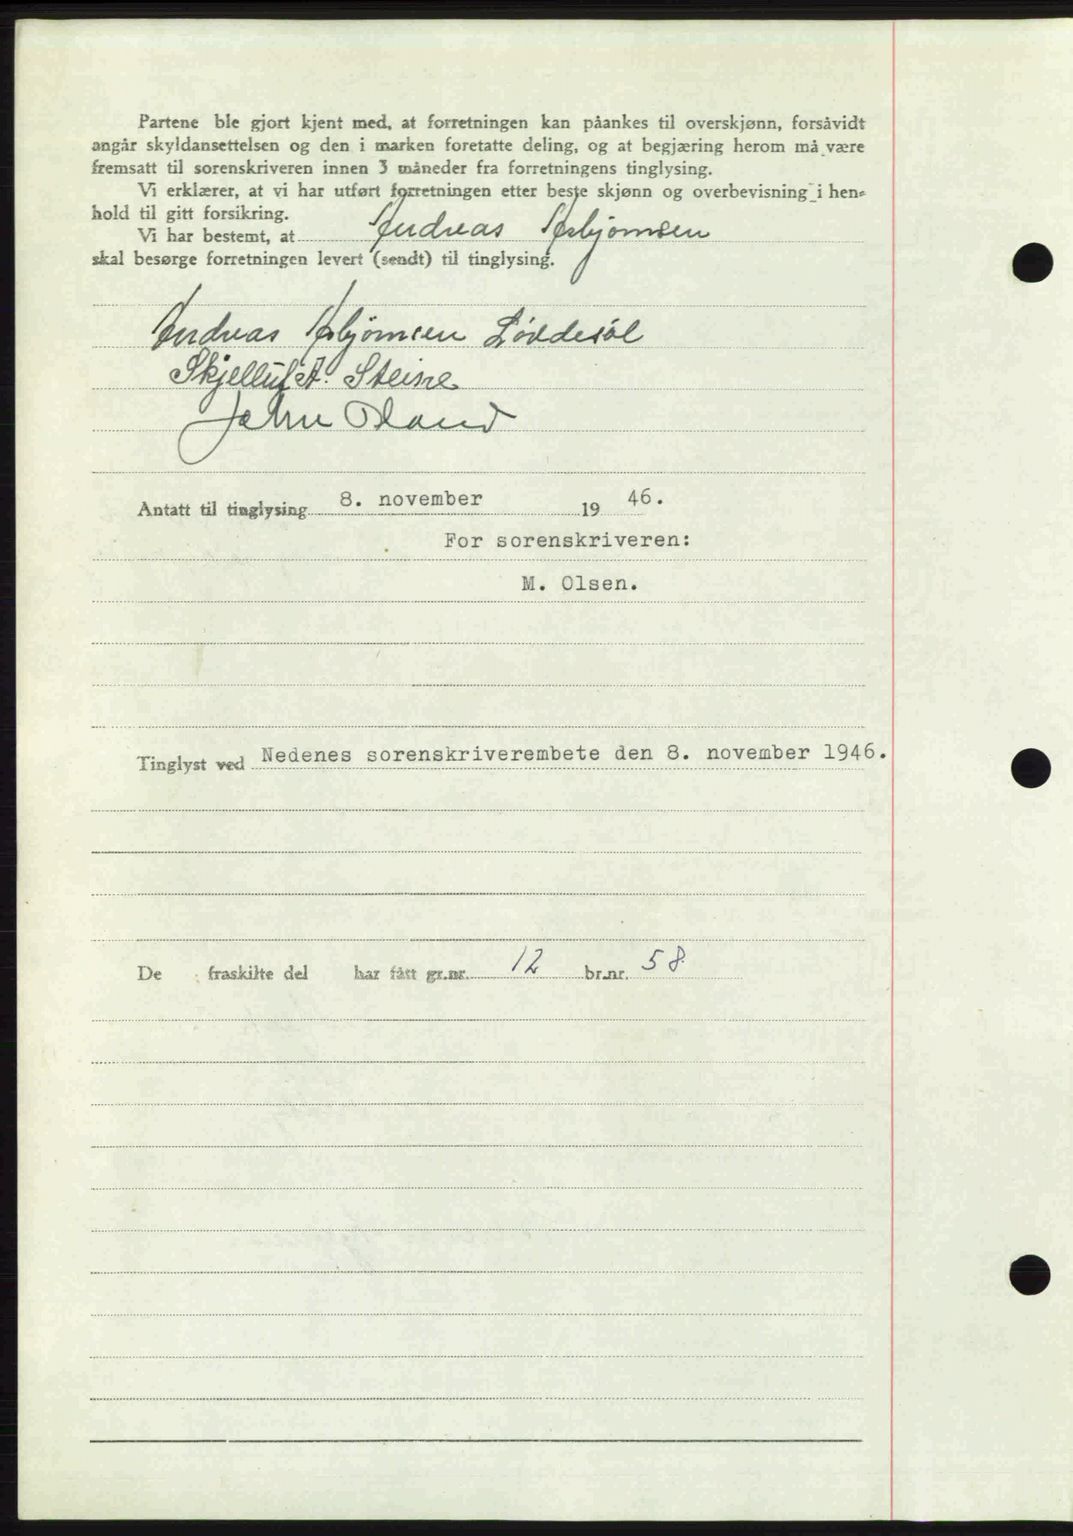 Partene ble gjort kjent med, at forretningen kan påankes til overskjønn, forsåvidt
angår skyldansettelsen og den i marken foretatte deling, og at begjæring herom må være
fremsatt til sorenskriveren innen 3 måneder fra forretningens tinglysing.
Vi erklærer, at vi har utført forretningen etter beste skjønn og overbevisning i hen-
hold til gitt forsikring.
Vi har bestemt, at Andreas Asbjörnsen
skal besørge forretningen levert (sendt) til tinglysing.
Andreas Asbjörnsen Löddesöl
A. Steine
John
Antatt til tinglysing 8. november 19 46.
For sorenskriveren:
M. Olsen.
Tinglyst ved Nedenes sorenskriverembete den 8. november 1946.
De fraskilte del har fått gr.nr. 12 br.nr. 58